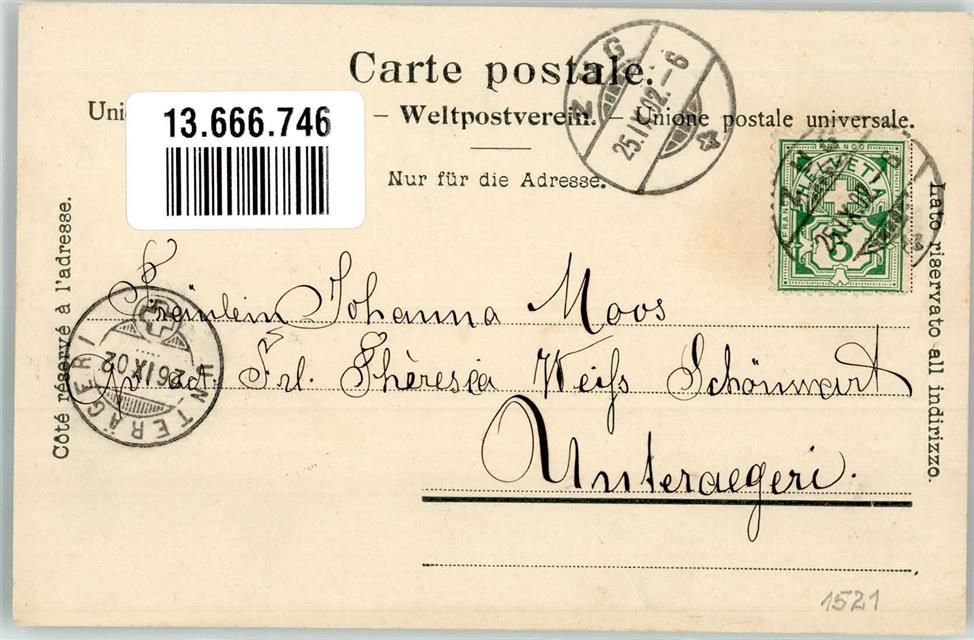 Carte postale.
Unio
– Weltpostverein. – Unione postale universale.
Nur für die Adresse.
13.666.746
ZUG
25.IX.02.-6
FRANCO
HELVETIA
FRANCO
5
25.IX.02
Côté réservé à l'adresse.
Lato riservato all indirizzo.
UNTERÄGERI
26.IX.02
Fräulein Johanna Moos
Frl. Thèresea Weifs Schönwart
Unteraegeri.
1521